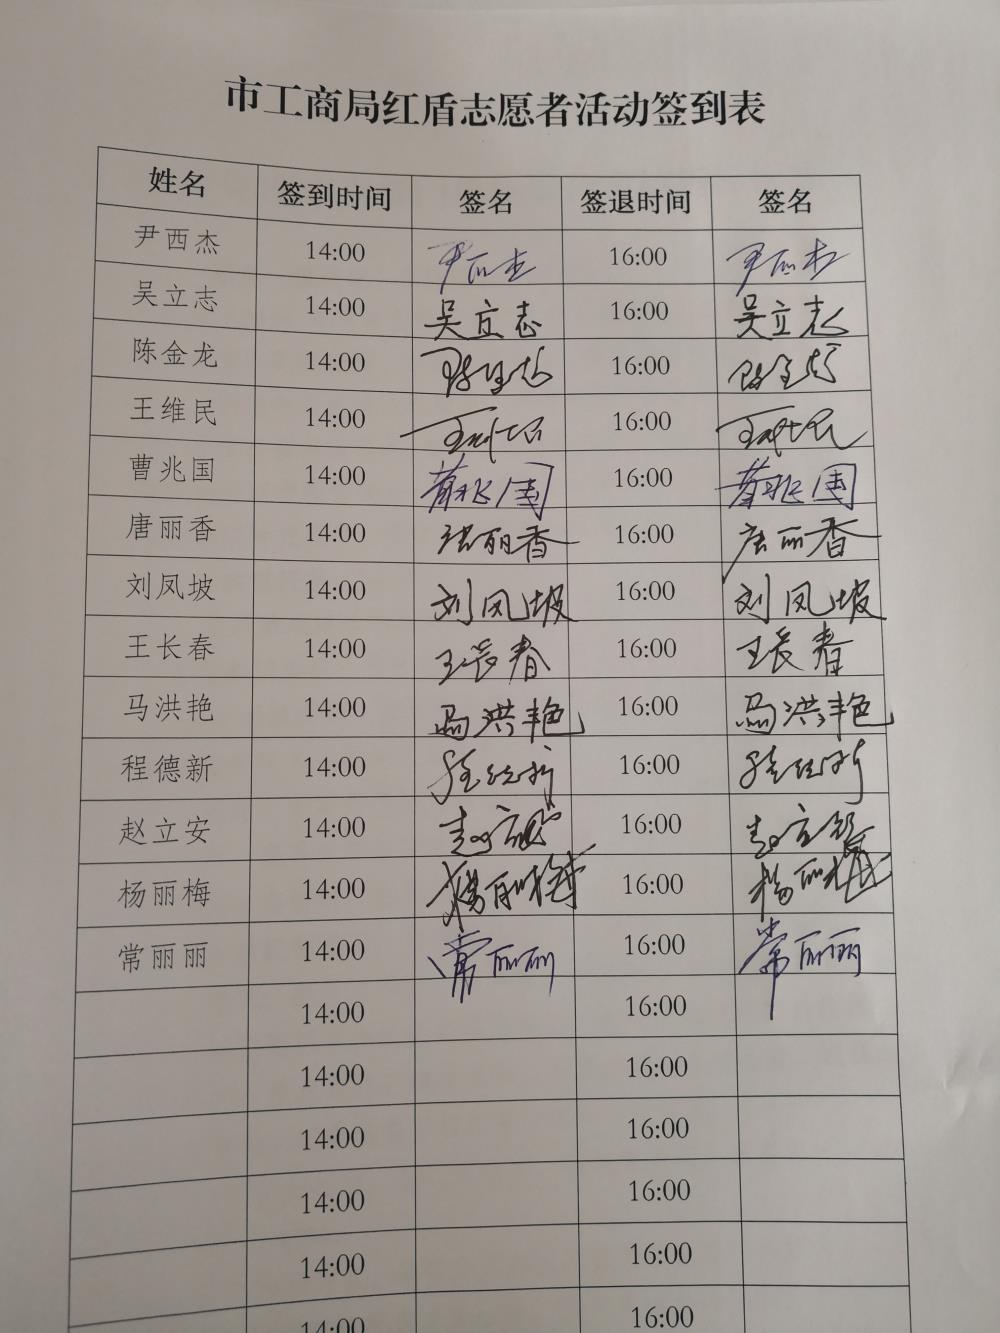 市工商局红盾志愿者活动签到表
姓名 签到时间 签名 签退时间 签名
尹西杰 14:00 尹西杰 16:00 尹西杰
吴立志 14:00 吴立志 16:00 吴立志
陈金龙 14:00 陈金龙 16:00 陈金龙
王维民 14:00 王维民 16:00 王维民
曹兆国 14:00 曹兆国 16:00 曹兆国
唐丽香 14:00 唐丽香 16:00 唐丽香
刘凤坡 14:00 刘凤坡 16:00 刘凤坡
王长春 14:00 王长春 16:00 王长春
马洪艳 14:00 马洪艳 16:00 马洪艳
程德新 14:00 程德新 16:00 程德新
赵立安 14:00 赵立安 16:00 赵立安
杨丽梅 14:00 杨丽梅 16:00 杨丽梅
常丽丽 14:00 常丽丽 16:00 常丽丽
14:00 16:00
14:00 16:00
14:00 16:00
14:00 16:00
14:00 16:00
14:00 16:00